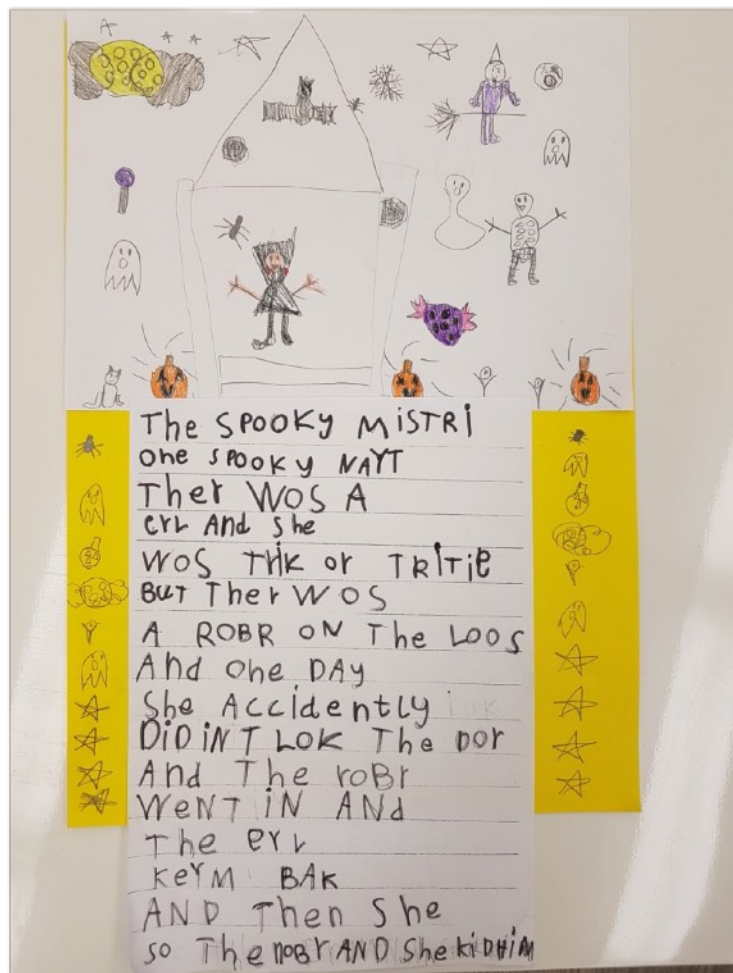 The SPOOKY MiSTRi
one SPOOKY NAYT
Ther WOS A
erL And She
WOS TRiK or TRiTiE
BUT Ther WOS
A ROBR ON The LOOS
And One DAY
She Accidently
DiDiNT LOK The DOr
And The roBr
WeNT iN ANd
The erL
KeYM BAK
AND Then She
so The roBr AND She KiDHiM